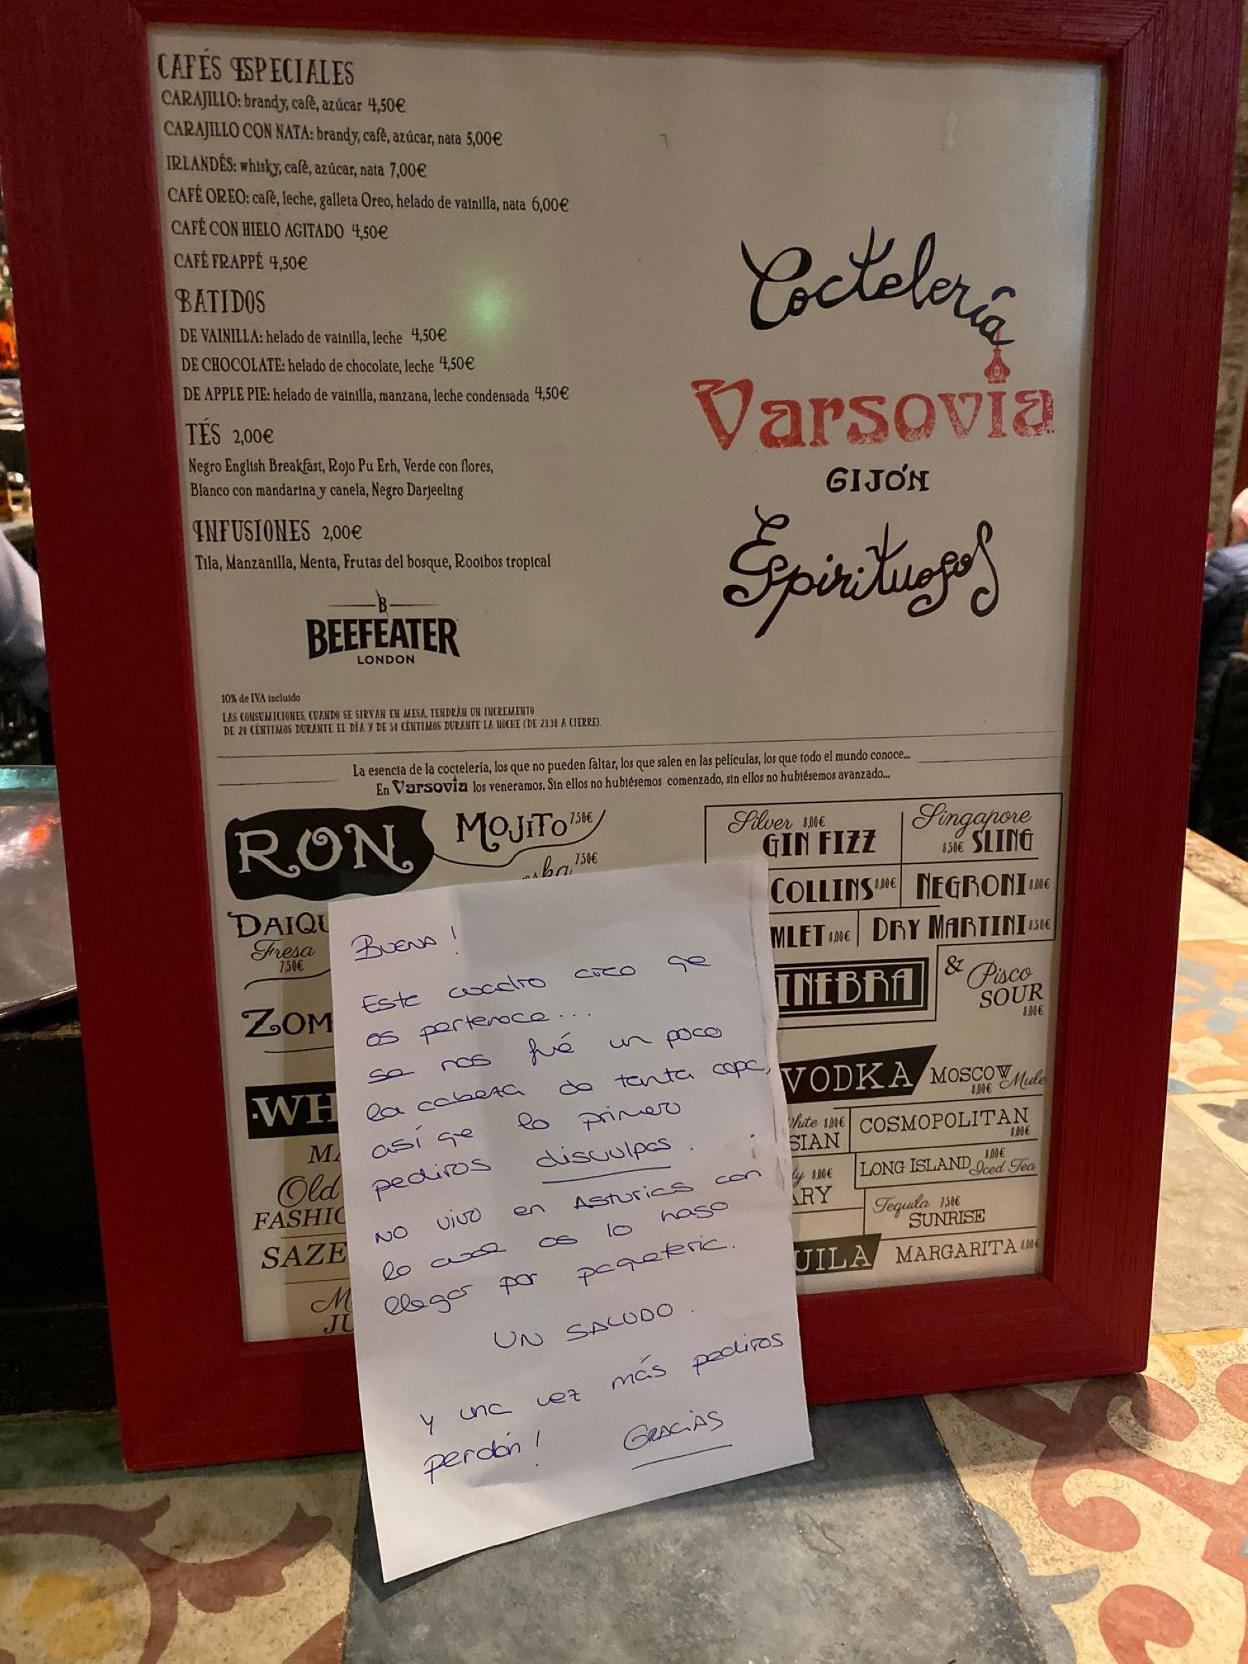 CAFÉS ESPECIALES
CARAJILLO: brandy, café, azúcar 4,50€
CARAJILLO CON NATA: brandy, café, azúcar, nata 5,00€
IRLANDÉS: whisky, café, azúcar, nata 7,00€
CAFÉ OREO: café, leche, galleta Oreo, helado de vainilla, nata 6,00€
CAFÉ CON HIELO AGITADO 4,50€
CAFÉ FRAPPÉ 4,50€
BATIDOS
DE VAINILLA: helado de vainilla, leche 4,50€
DE CHOCOLATE: helado de chocolate, leche 4,50€
DE APPLE PIE: helado de vainilla, manzana, leche condensada 4,50€
TÉS 2,00€
Negro English Breakfast, Rojo Pu Erh, Verde con flores,
Blanco con mandarina y canela, Negro Darjeeling
INFUSIONES 2,00€
Tila, Manzanilla, Menta, Frutas del bosque, Rooibos tropical
B
BEEFEATER
LONDON
10% de IVA incluido
LAS CONSUMICIONES, CUANDO SE SIRVAN EN MESA, TENDRÁN UN INCREMENTO
DE 20 CÉNTIMOS DURANTE EL DÍA Y DE 50 CÉNTIMOS DURANTE LA NOCHE (DE 23:30 A CIERRE).
Coctelería
Varsovia
GIJÓN
Espirituosos
La esencia de la coctelería, los que no pueden faltar, los que salen en las películas, los que todo el mundo conoce...
En Varsovia los veneramos. Sin ellos no hubiésemos comenzado, sin ellos no hubiésemos avanzado...
RON
MOJITO 7,50€
ska 7,50€
DAIQU
Fresa
7,50€
ZOM
WH
MA
Old
FASHIO
SAZE
M
JU
Silver 8,00€
GIN FIZZ
Singapore
8,50€ SLING
COLLINS 8,00€
NEGRONI 8,00€
MLET 8,00€
DRY MARTINI 8,50€
INEBRA
& Pisco
SOUR
8,00€
VODKA
MOSCOW Mule
8,00€
hite 8,00€
SIAN
COSMOPOLITAN
8,00€
dy 8,00€
ARY
LONG ISLAND Iced Tea
8,00€
Tequila 7,50€
SUNRISE
UILA
MARGARITA 8,00€
BUENA!
Este cuadro creo qe
os pertenece...
se nos fué un poco
la cabeza de tanta copa,
así qe lo primero
pediros disculpas.
NO vivo en ASTURIAS con
lo cual os lo hago
llegar por paqueteria.
UN SALUDO.
y una vez más pediros
perdón!
GRACIAS